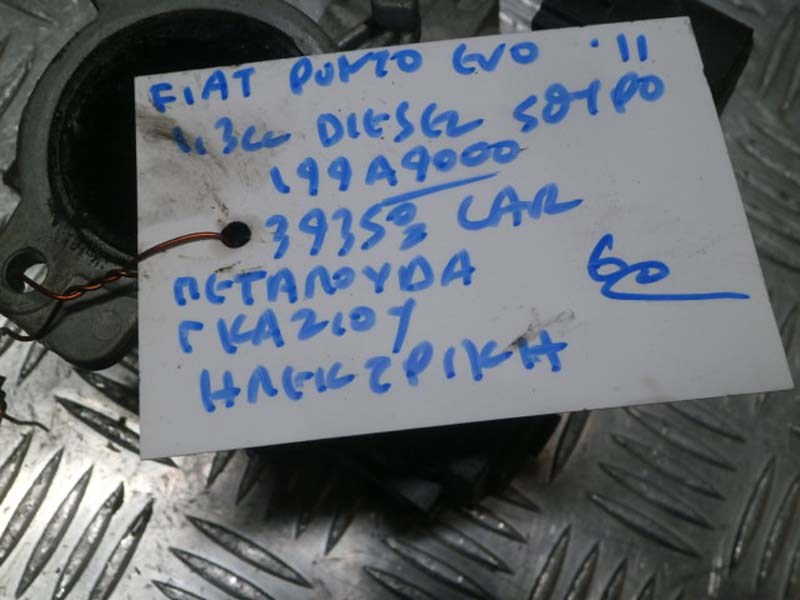 FIAT PUNTO EVO '11
1.3cc DIESEL 5ΘΥΡΟ
199A9000
39350 CAR
ΠΕΤΑΛΟΥΔΑ
60
ΓΚΑΖΙΟΥ
ΗΛΕΚΤΡΙΚΗ